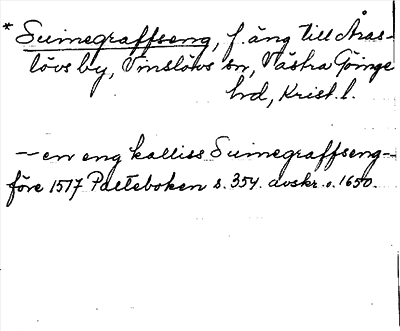 * Suinegraffseng, f. äng till Åras-
lövs by, Vinslövs sn, Västra Göinge
hd, Krist. l.
— en eng kalliss Suinegraffseng —
före 1517 Palteboken s. 354. avskr. o. 1650.